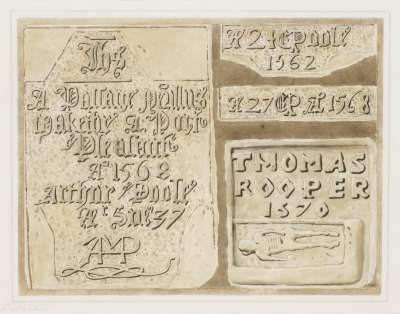 IhS
A Passage perillus
Makethe A Port
Pleasant
Aº 1568
Arthur Poole
Æt Sue 37
AMP
Æ 24 EPoole
1562
Æ 27 EP. Aº 1568
THOMAS
ROOPER
1570